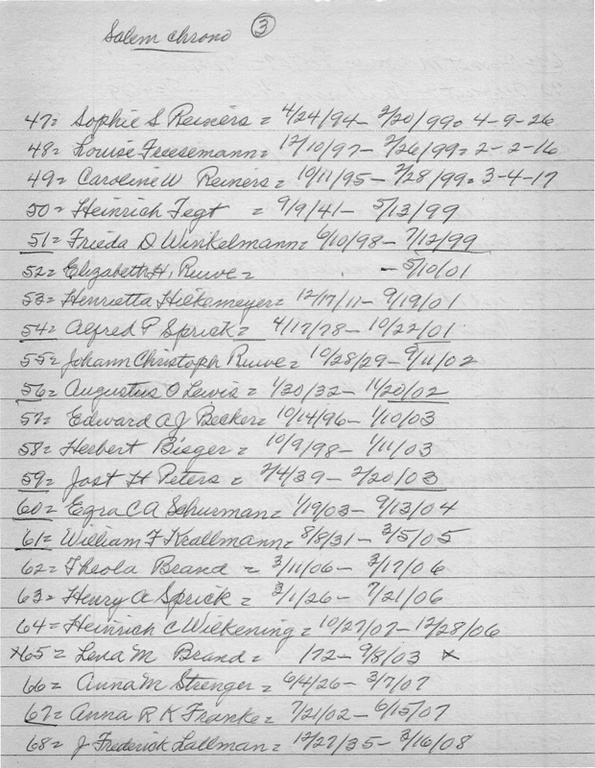 Salem chrono ③
47= Sophie S Reiners = 4/24/94 - 2/20/99 = 4-9-26
48= Louise Freesemann = 12/10/97 - 2/26/99 = 2-2-16
49= Caroline W Reiners = 10/11/95 - 2/28/99 = 3-4-17
50= Heinrich Tegt = 9/9/41 - 5/13/99
51= Frieda D Winkelmann = 6/10/98 - 7/12/99
52= Elizabeth H. Ruwe = - 5/10/01
53= Henrietta Hickemeyer = 12/17/11 - 9/19/01
54= Alfred P Sprick = 4/17/78 - 10/22/01
55= Johann Christoph Ruwe = 10/28/29 - 9/11/02
56= Augustus O Lewis = 1/30/32 - 11/20/02
57= Edward A J Becker = 10/14/96 - 1/10/03
58= Herbert Bieger = 10/9/98 - 1/11/03
59= Jost H Peters = 2/4/39 - 2/20/03
60= Ezra C A Schurman = 1/19/03 - 9/13/04
61= William F Krallmann = 8/8/31 - 3/5/05
62= Theola Brand = 3/11/06 - 3/17/06
63= Henry A Sprick = 3/1/26 - 7/21/06
64= Heinrich C Wiekening = 10/27/07 - 12/28/06
*65= Lena M Brand = 172 - 9/8/03 *
66= Anna M Strenger = 6/4/26 - 3/7/07
67= Anna R K Franke = 7/21/02 - 6/15/07
68= J Frederick Lallman = 12/27/35 - 3/16/08